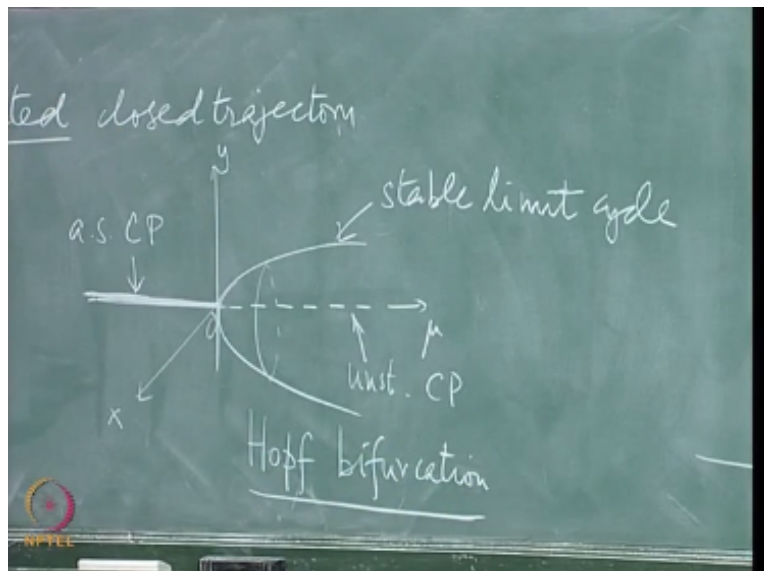 ted closed trajectory
y
stable limit cycle
a.s. CP
0
μ
x
Unst. CP
Hopf bifurcation
NPTEL